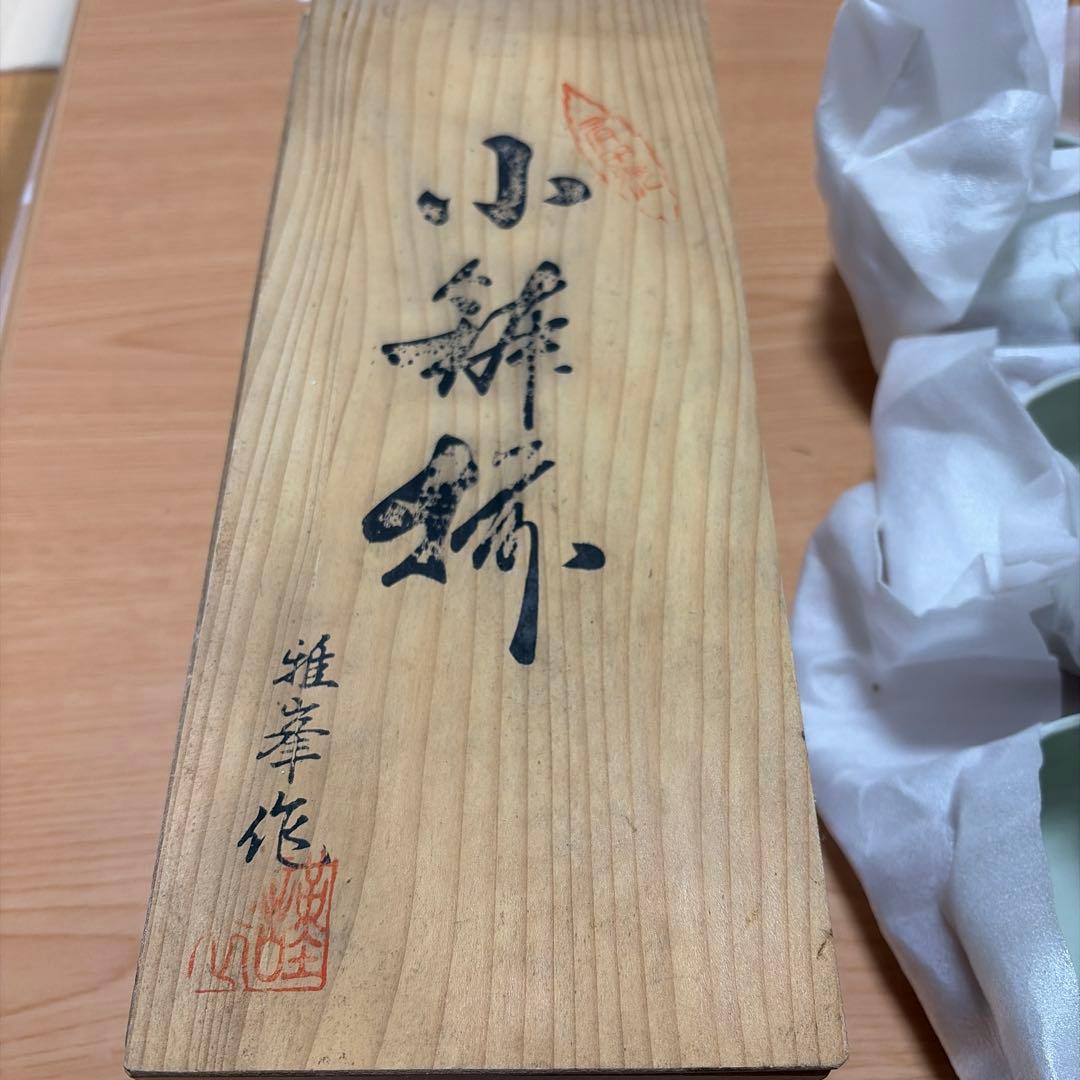 小鉢揃
雅峯作